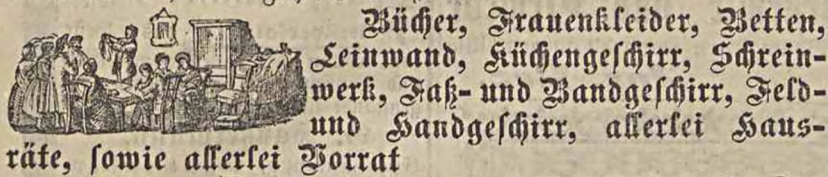 Bücher, Frauenkleider, Betten,
Leinwand, Küchengeschirr, Schrein-
werk, Faß- und Bandgeschirr, Feld-
und Handgeschirr, allerlei Haus-
räte, sowie allerlei Vorrat